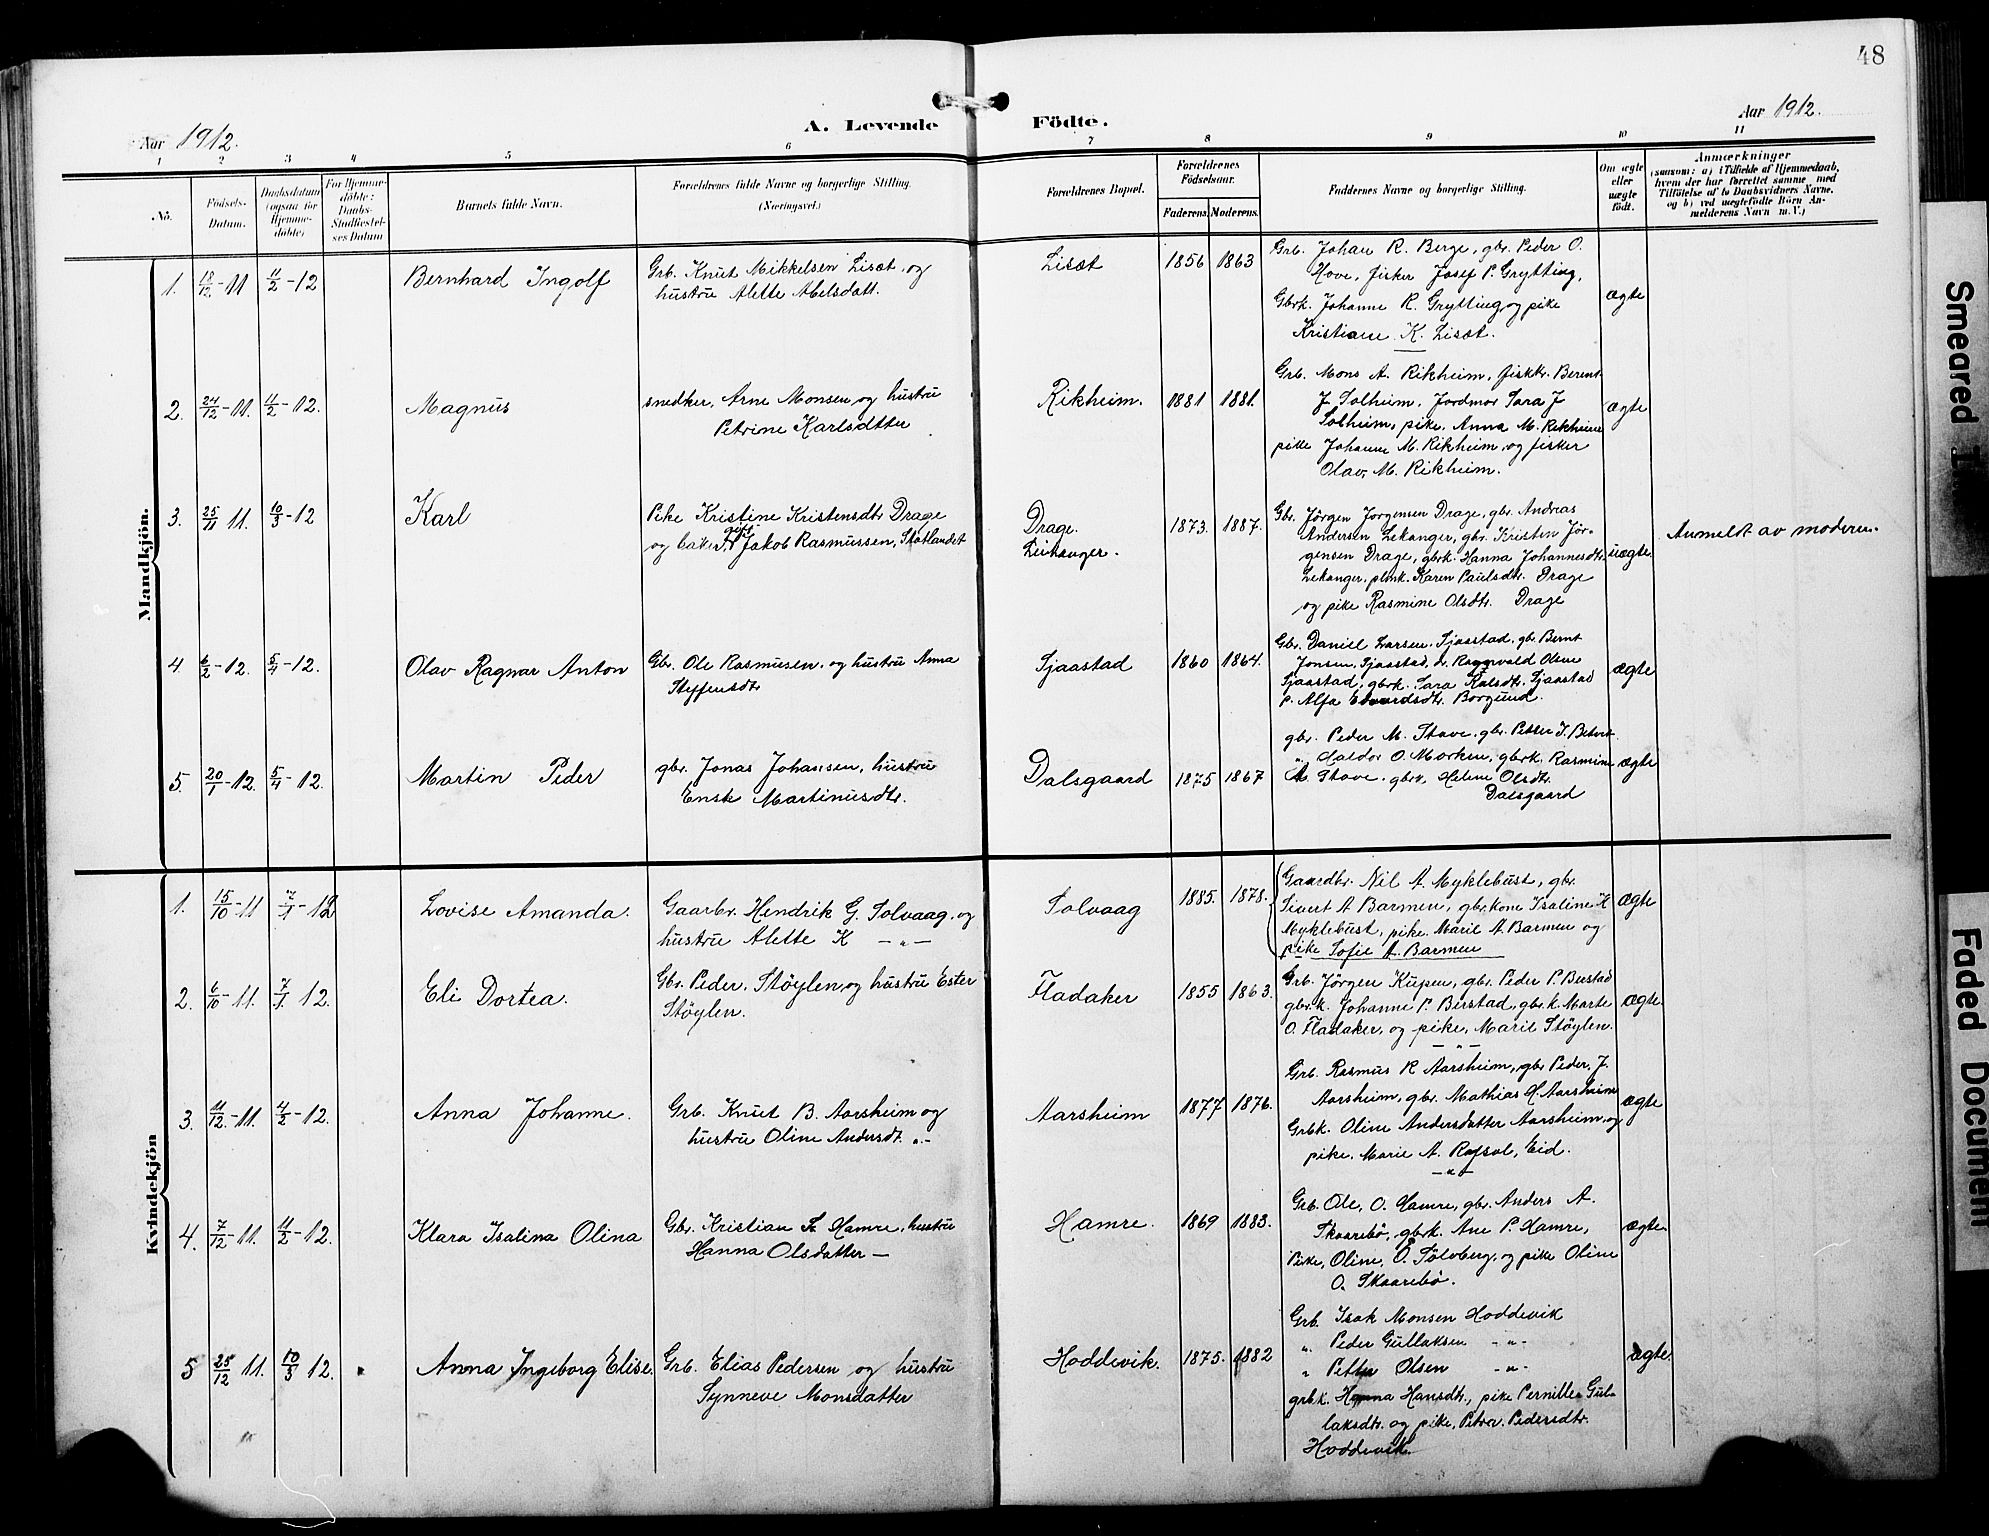 48
Aar 1912.
A. Levende Födte.
Aar 1912.
1 2 3 4 5 6 7 8 9 10 11
No.
Födsels-Datum.
Daabsdatum (ogsaa for Hjemmedöbte)
For Hjemmedöbte: Daabs-Stadfæstelses Datum
Barnets fulde Navn.
Forældrenes fulde Navne og borgerlige Stilling.
(Næringsvei.)
Forældrenes Bopæl.
Forældrenes Födselsaar.
Faderens. Moderens.
Faddernes Navne og borgerlige Stilling.
Om ægte eller uægte födt.
Anmærkninger
(saasom: a) i Tilfælde af Hjemmedaab, hvem der har forrettet samme med Tilföielse af to Daabsvidners Navne, og b) ved uægtefödte Börn Anmelderens Navn m. V.)
Mandkjön.
1. 18/12-11 11/2-12 Bernhard Ingolf
Grb. Knut Mikkelsen Lisæt, og
hustru Alette Abelsdatt.
Lisæt 1856 1863
Grb. Johan R. Berge, gbr. Peder O.
Hove, fisker Josef P. Grytting,
Gbrk. Johanne R. Grytting, og pike
Kristiane K. Lisæt.
ægte
2. 24/12-11. 11/2-12. Magnus
snedker, Arne Monsen, og hustru
Petrine Karlsdtter
Rikheim. 1881 1881.
Grb. Mons A. Rikheim, fiskr. Berent
J. Solheim, Jordmor Sara J
Solheim, pike. Anna M. Rikheim
pike Johanne M. Rikheim, og fisker
Olav, M. Rikheim.
ægte
3. 25/11 11. 10/3-12 Karl
Pike Kristine Kristensdtr Drage
og baker, gift Jakob Rasmussen, Statlandet
Drage.
Leikanger. 1873. 1887.
Gbr. Jörgen Jorgensen Drage, gbr. Andreas
Andersen Lekanger, gbr. Kristen Jör-
gensen Drage, gbrk. Hanna Johannesdtr.
Lekanger, plmk. Karen Paulsdtr. Drage
og pike Rasmine Olsdtr. Drage
uægte
Anmeldt av moderen.
4 6/2-12. 5/4-12. Olav Ragnar Anton
Gbr. Ole Rasmusen, og hustru Anna
Steffensdtr
Sjaastad 1860 1864.
Gbr. Daniel Larsen, Sjaastad, gbr. Bernt
Jonsen, Sjaastad, dr. Ragnvald Olsen
Sjaastad, gbrk. Sara Kalsdtr. Sjaastad
p. Alfa Edvardsdtr. Borgund.
ægte
5. 20/1-12. 5/4-12. Martin Peder
gbr. Jonas Johansen, hustru
Enske Martinusdtr.
Dalsgaard 1875 1867
gbr. Peder M. Stave, gbr. Petter J.
" Haldor O. Morken, gbrk. Rasmine
M. Stave. gbrk. Helene Olsdtr.
Dalsgaard
ægte
Kvindekjön
1. 15/10-11 7/1-12 Lovise Amanda.
Gaarbr. Hendrik G. Solvaag, og
hustru Alette K — „ —
Solvaag 1885. 1878.
Gaardbr. Nil A. Myklebust, gbr.
Sivert A Barmen, gbr.kone Isaline K
Myklebust, pike. Marie A. Barmen og
pike Sofie A. Barmen
ægte
2. 6/10-11. 7/1 12. Eli Dortea.
Gbr. Peder. Stöylen, og hustru Ester
Stöylen.
Fladaker 1855 1863.
Grb. Jörgen Kupen, gbr. Peder P. Berstad
gbr.k. Johanne P. Berstad, gbr.k. Marte
O. Fladaker, og pike, Marie Stöylen.
— „ —
ægte
3. 11/12-11. 4/2-12. Anna Johanne.
Grb. Knut B. Aarsheim og
hustru Oline Andersdt. „-
Aarsheim 1877 1876.
Grb. Rasmus R Aarsheim, gbr Peder, J.
Aarsheim, gbr. Mathias H. Aarsheim
Grbk. Oline Andersdatter Aarsheim, og
pike. Marie A. Rafsal, Eid.
— „ —
ægte
4. 7/12-11. 11/2-12. Klara Isalina Olina
Gbr. Kristian K Hamre, hustru
Hanna Olsdatter —
Hamre. 1869 1883.
Grb. Ole, O. Hamre, gbr. Anders A.
Skaarebö, gbrk. Ane P. Hamre,
Pike, Oline, O. Sölvberg, og pike Oline
O. Skaarebö.
ægte.
5 25/12 11. 10/3 12. Anna Ingeborg Elise.
Grb. Elias Pedersen og hustru
Synneve Monsdatter
Hoddevik. 1875. 1882
Grb. Isak Monsen Hoddevik
" Peder Gullaksen — „ -
" Petter Olsen — „ -
grbk. Hanna Hansdtr., pike Pernille Gul-
laksdtr. og pike, Petra. Pedersdtr.
Hoddevik.
ægte.
Smeared
Faded Document